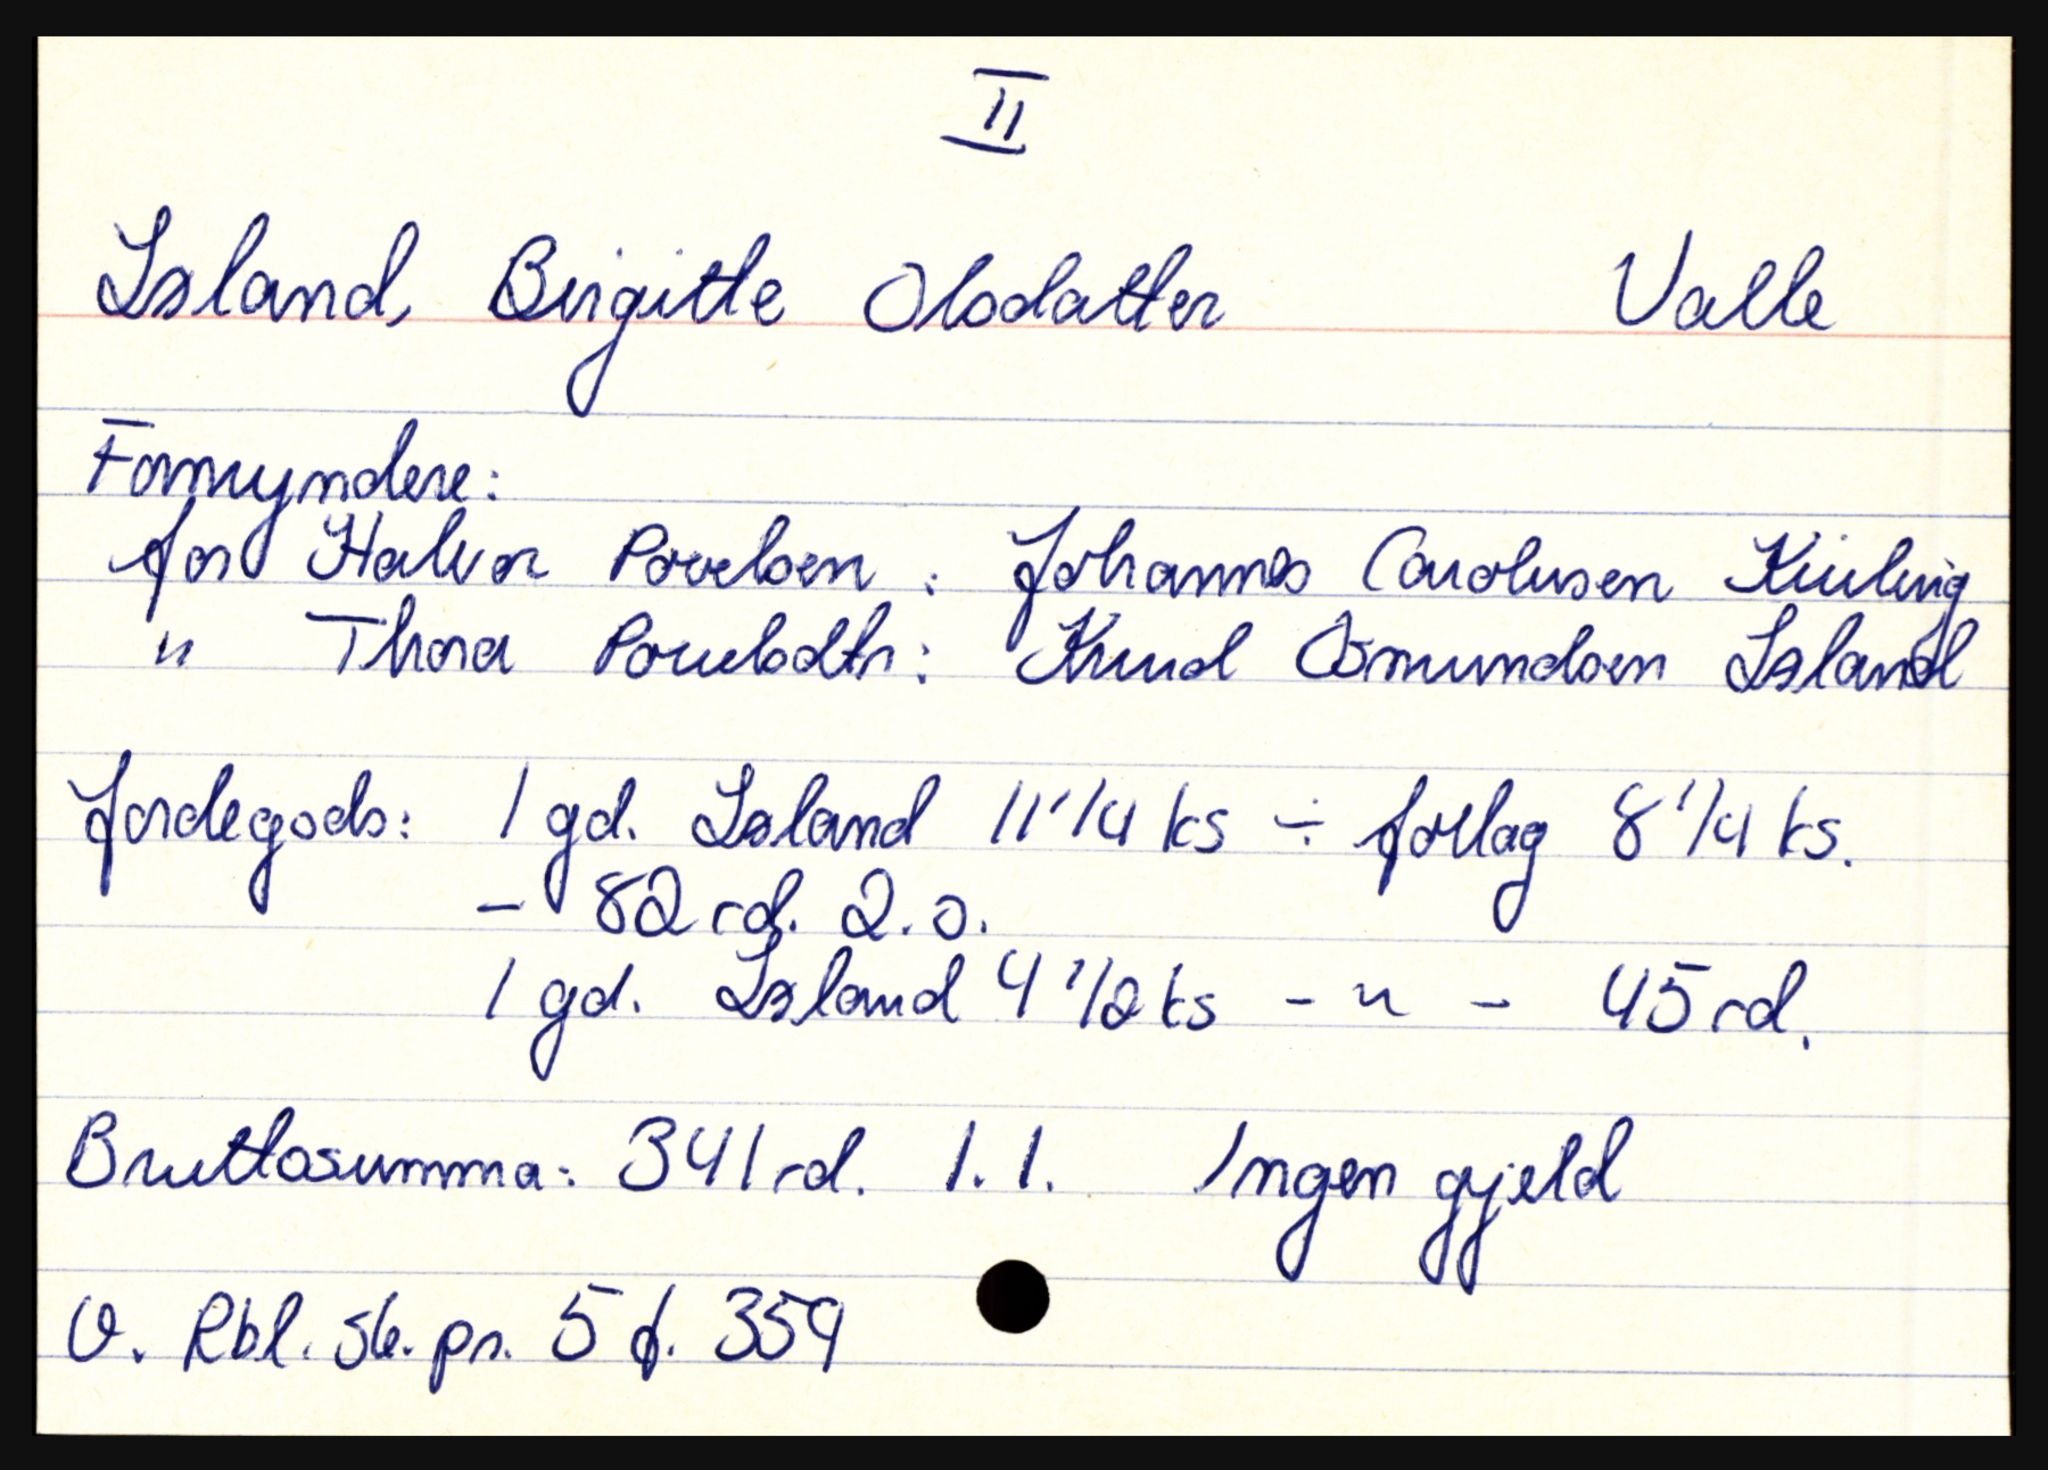 II
Løland, Birgitte Olsdatter Valle
Formyndere:
for Halvor Povelsen : Johannes Carolusen
" Thora Povelsdtr: Knud Osmundsen Løland
Jordegods: 1 gd. Løland 11 1/4 ks ÷ forlag 8 1/4 ks.
- 82 rd. 2. 0.
1 gd. Løland 4 1/2 ks - " - 45 rd.
Bruttosumma: 341 rd. 1. 1. Ingen gjeld
V. Rbl. sk. pr. 5 f. 359